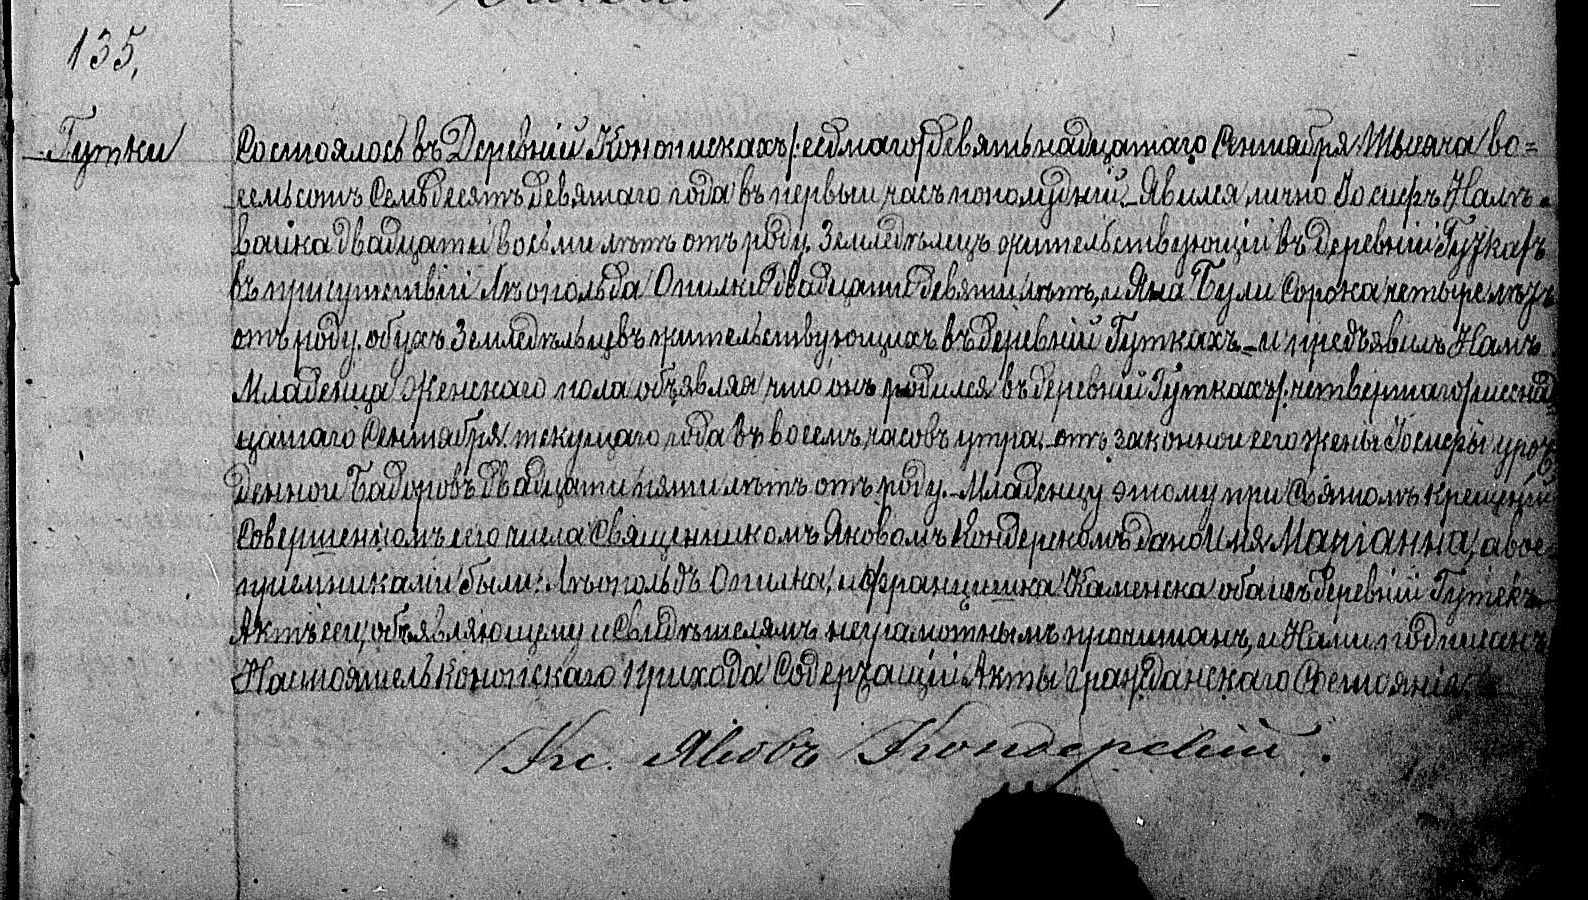 135.
Гутки
Состоялось въ Деревніи Конопискахъ /:седмаго/ девятьнадцатаго Сентября Тысяча во=
семьсотъ Семьдесятъ девятаго года въ первый часъ пополудніи. Явился лично Іосифъ Налѣ-
вайка двадцати восьми лѣтъ отъ роду, Земледѣлецъ жительствующій въ Деревніи Гуткахъ
въ присутствіи Лѣопольда Опилки двадцати девяти лѣтъ, и Яна Були Сорока четыре лѣтъ
отъ роду, обухъ Земледѣльцевъ жительствующихъ въ деревніи Гуткахъ и предъявилъ Намъ
Младенца Женскаго пола объявляя что онъ родился въ деревніи Гуткахъ /:четвертаго/ шеснад
цатаго Сентября текущаго года въ восемь часовъ утра отъ законной его жены Іосифы урож
денной Бадоровъ двадцати пяти лѣтъ отъ роду. Младенцу этому при Святомъ крещеніи
Совершенномъ сего числа Священникомъ Яковомъ Кондерскомъ дано Имя Маріанна, а вос
пріемниками были: Лѣопольдъ Опилка, и Францишка Каменска оба изъ деревніи Гутекъ
Актъ сей, объявляющему и Свидѣтелямъ неграмотнымъ прочитанъ, и Нами подписанъ
Настоятель Конопскаго прихода Содержащій Акты Гражданскаго Состоянія
Кс. Яковъ Кондерскій.